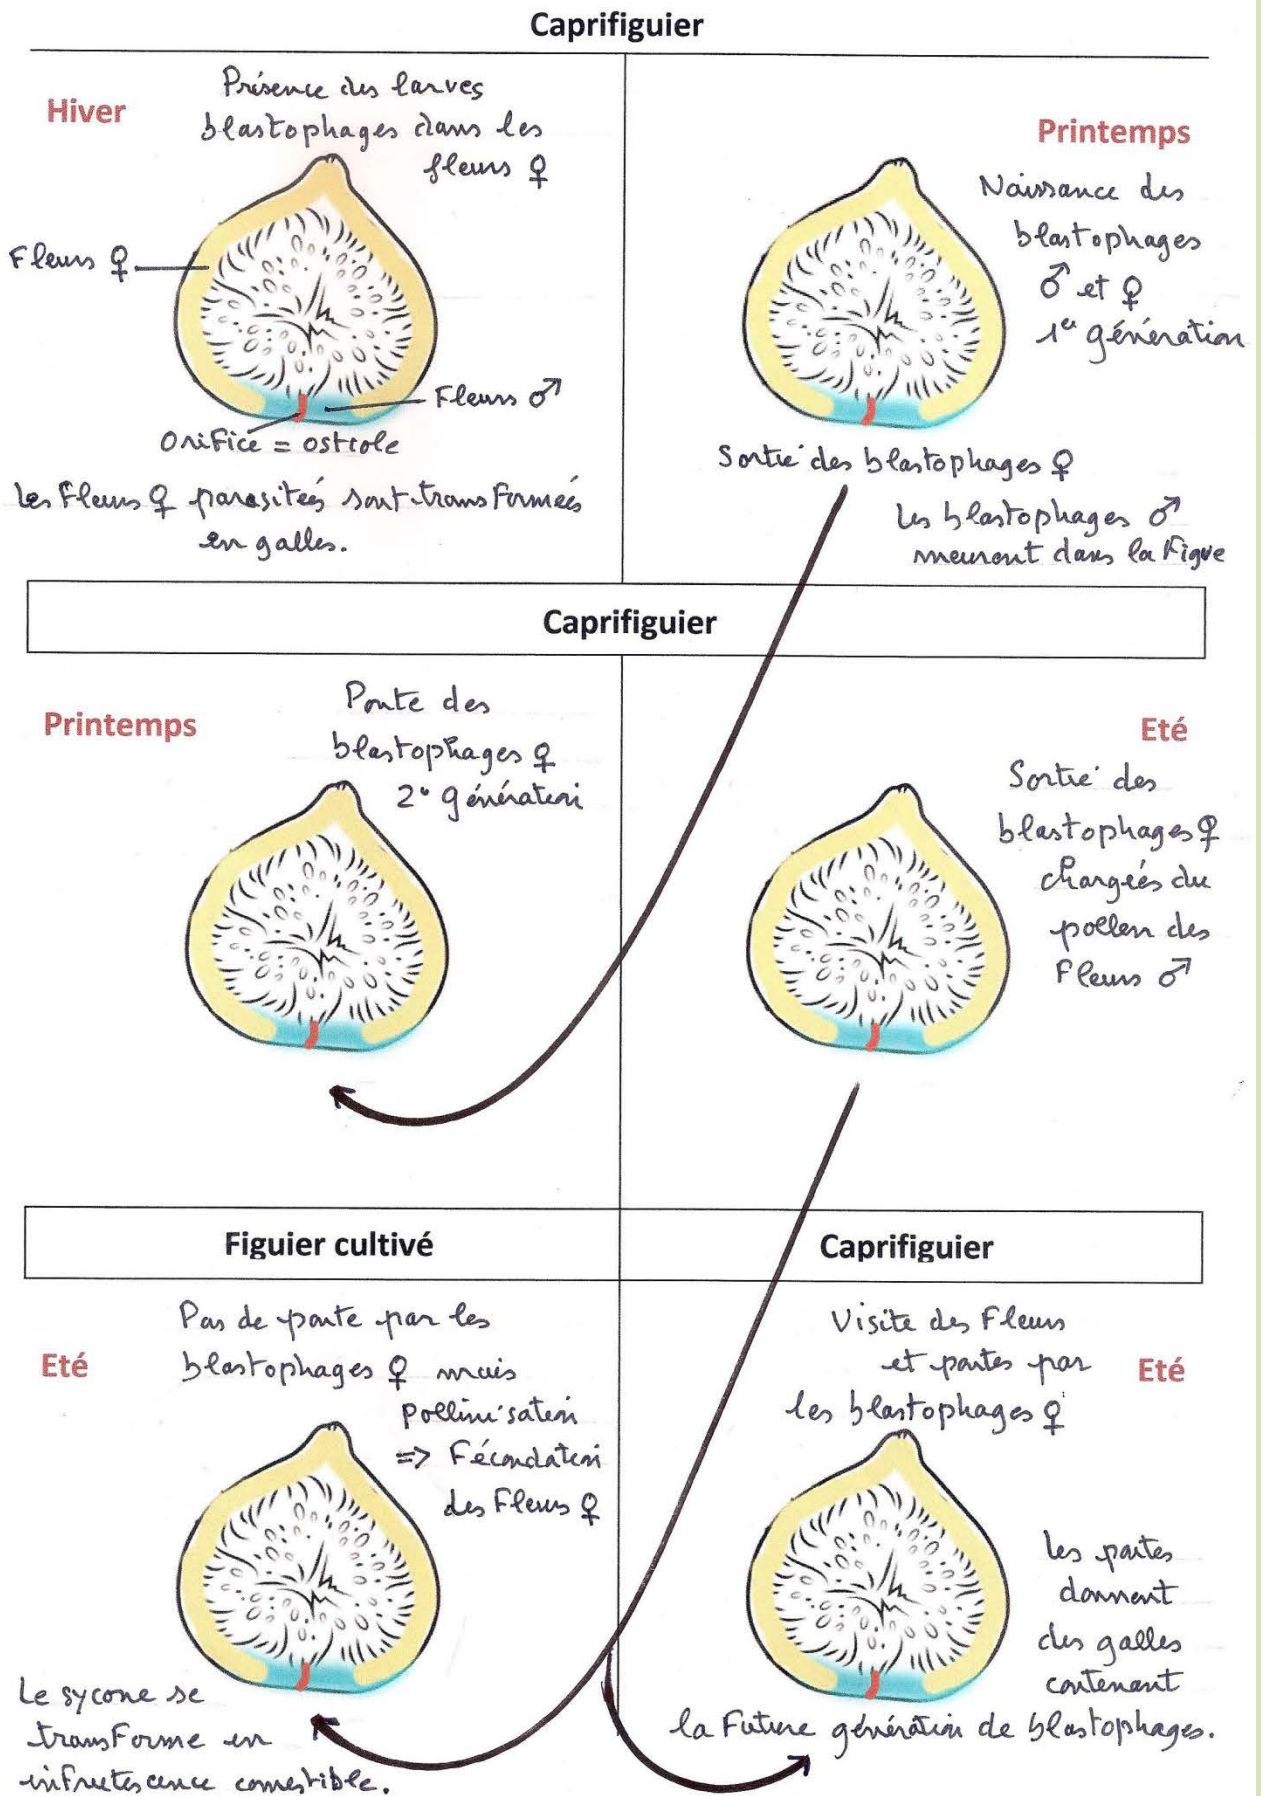 Caprifiguier
Hiver
Présence des larves
blastophages dans les
fleurs ♀
Fleurs ♀
Fleurs ♂
Orifice = ostiole
Les Fleurs ♀ parasitées sont transformées
en galles.
Printemps
Naissance des
blastophages
♂ et ♀
1e génération
Sortie des blastophages ♀
Les blastophages ♂
meuront dans la Figue
Caprifiguier
Printemps
Ponte des
blastophages ♀
2e génération
Eté
Sortie des
blastophages ♀
chargées du
pollen des
Fleurs ♂
Figuier cultivé
Eté
Pas de ponte par les
blastophages ♀ mais
pollinisation
=> Fécondation
des Fleurs ♀
Le sycone se
transforme en
infrutescence comestible.
Caprifiguier
Eté
Visite des Fleurs
et pontes par
les blastophages ♀
les pontes
donnent
des galles
contenant
la Future génération de blastophages.